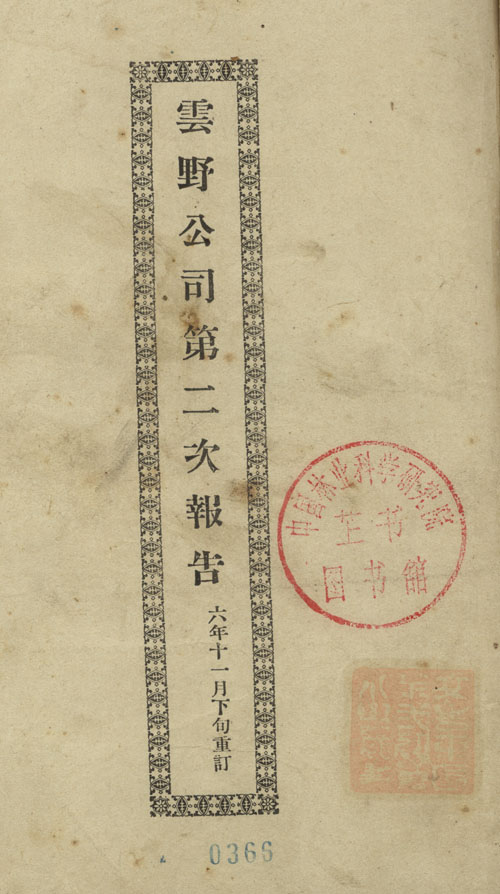 雲野公司第二次報告
六年十一月下旬重訂
中国林业科学研究院
图书館
0366